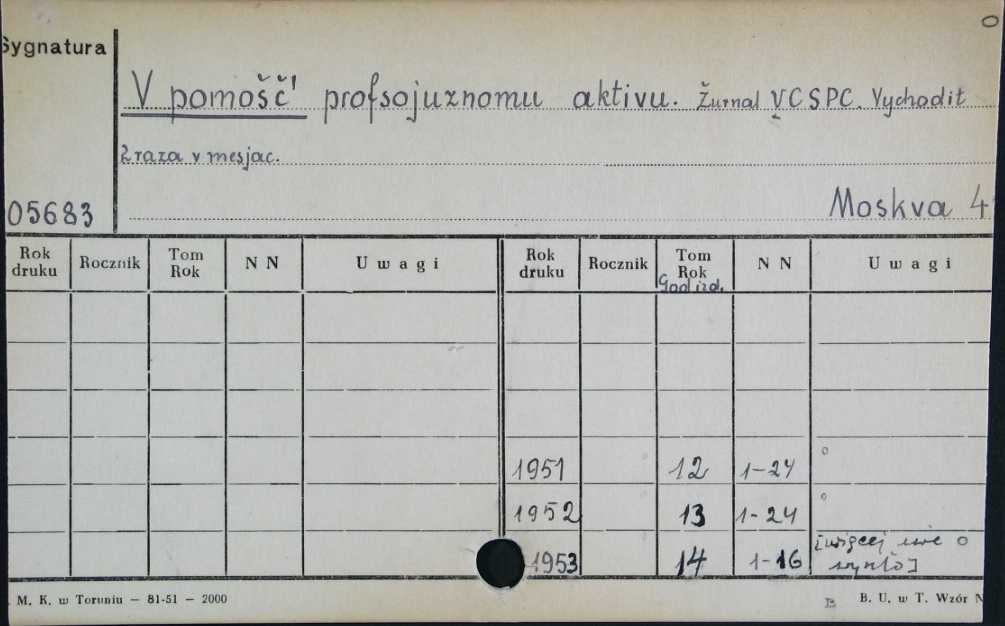 Sygnatura
V pomošč' profsojuznomu aktivu. Žurnal VCSPC. Vychodit
2 raza v mesjac.
05683
Moskva 4
Rok druku Rocznik Tom Rok N N Uwagi Rok druku Rocznik Tom Rok N N Uwagi
God izd.
1951 12 1-24
1952 13 1-24
1953 14 1-16 [więcej nie
wyszło]
M. K. w Toruniu — 81-51 — 2000
B. U. w T. Wzór N